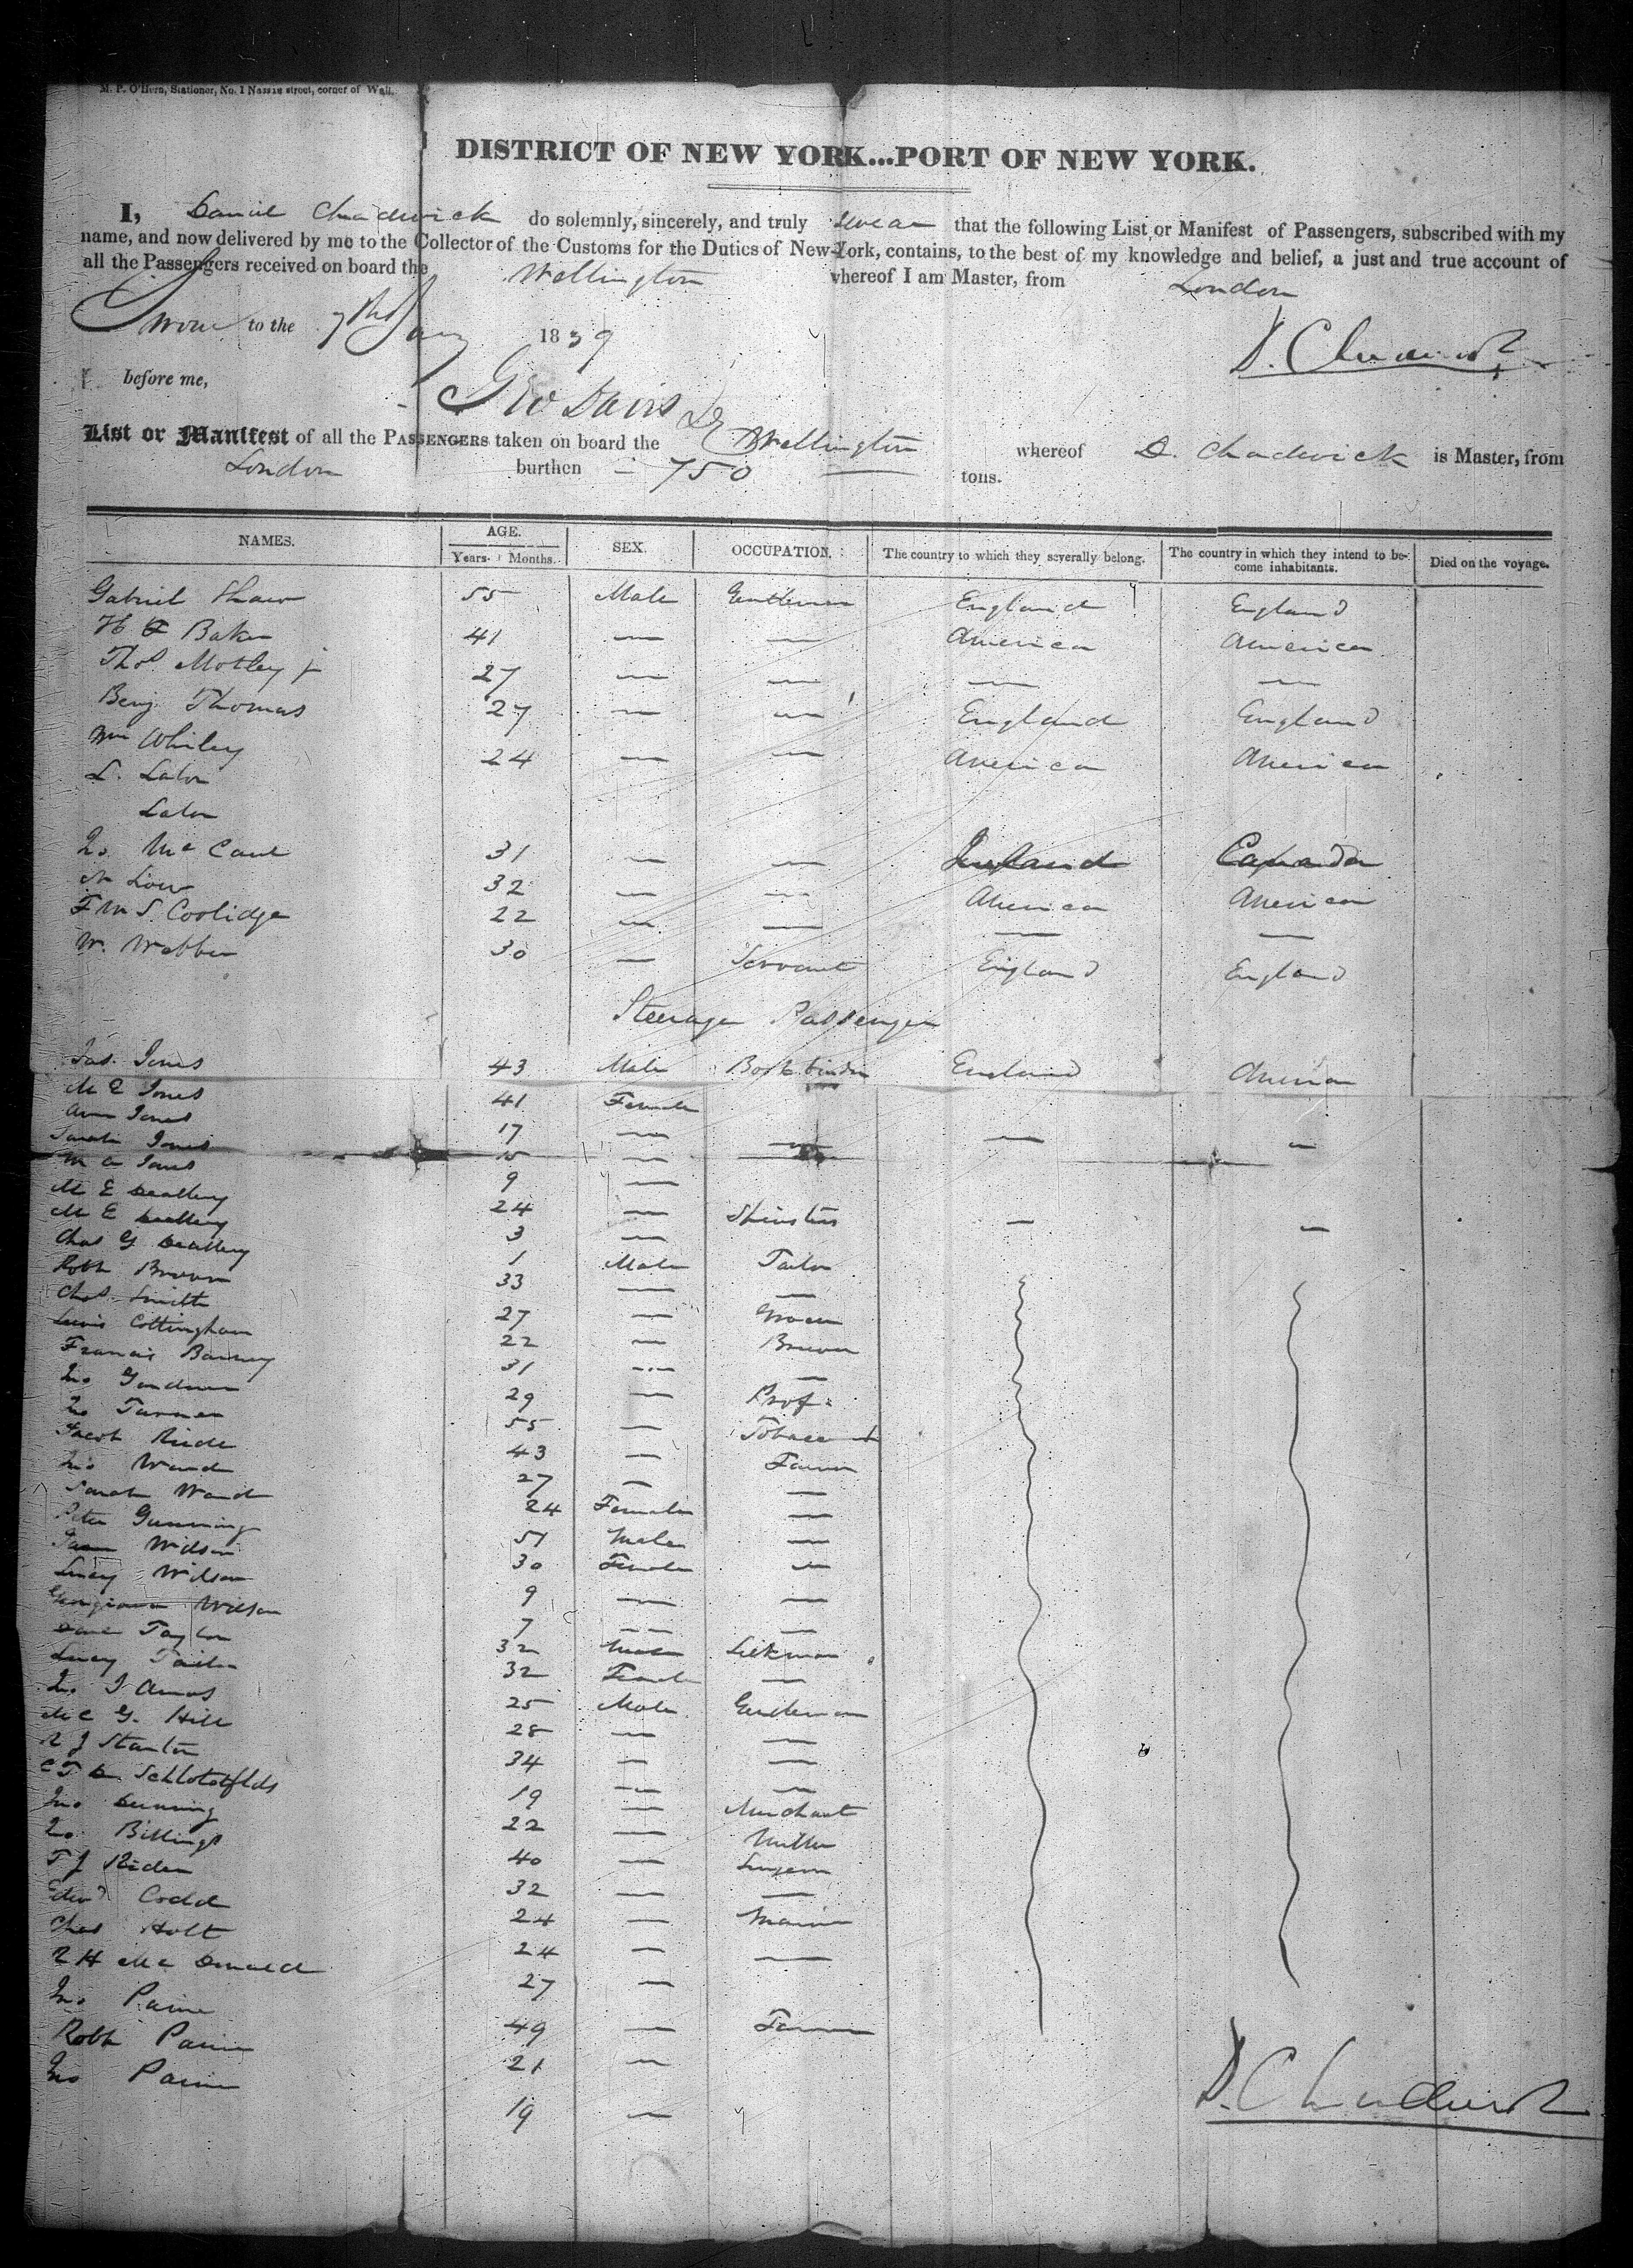 M. P. O'Hern, Stationer, No. 1 Nassau street, corner of Wall.
DISTRICT OF NEW YORK...PORT OF NEW YORK.
I, Daniel Chadwick do solemnly, sincerely, and truly swear that the following List or Manifest of Passengers, subscribed with my
name, and now delivered by me to the Collector of the Customs for the Duties of New-York, contains, to the best of my knowledge and belief, a just and true account of
all the Passengers received on board the Wellington whereof I am Master, from London
Sworn to the 7th Jany 1839 D. Chadwick
before me, Geo Davis
List or Manifest of all the PASSENGERS taken on board the Wellington whereof D. Chadwick is Master, from
London burthen 750 tons.
NAMES. AGE. Years. Months. SEX. OCCUPATION. The country to which they severally belong. The country in which they intend to become inhabitants. Died on the voyage.
Gabriel Shaw 55 Male Gentleman England England
H F Baker 41 — — America America
Thos Motley jr 27 — — — —
Benj Thomas 27 — — England England
Wm Whiley 24 — — America America
L. Lalor
Lalor
Jno McCaul 31 — — Ireland Canada
N Low 32 — — America America
F W S. Coolidge 22 — — — —
W. Webber 30 — Servant England England
Steerage Passenger
Jas. Jones 43 Male Bookbinder England America
M E Jones 41 Female
Ann Jones 17 — — — —
Sarah Jones 15 — —
M A Jones 9 —
M E 24 — Spinster — —
M E 3 —
Chas G 1 Male Tailor
Robt Brown 33 — —
Chas Smith 27 — Grocer
Lewis Cottingham 22 — Brewer
Francis Barney 31 — —
Jno Goodman 29 — Prof.
Jno Turner 55 — Tobacconist
Jacob 43 — Farmer
Jno Ward 27 — —
Sarah Ward 24 Female —
Peter Gunning 51 Male —
Wilson 30 Female —
Lucy Wilson 9 — —
Georgiana Wilson 7 — —
Taylor 32 Male Silkman
Lucy Tailor 32 Female —
Jno J Amos 25 Male Gentleman
Mc G. Hill 28 — —
R J Stanton 34 — —
C T 19 — —
Jno Dunning 22 — Merchant
Jno Billings 40 — Miller
T J Rider 32 — Surgeon
Edwd Codd 24 — —
Chas Holt 24 — Mariner
R H McDonald 27 — —
Jno Paine 49 — Farmer
Robt Paine 21 —
Jno Paine 19 —
D. Chadwick